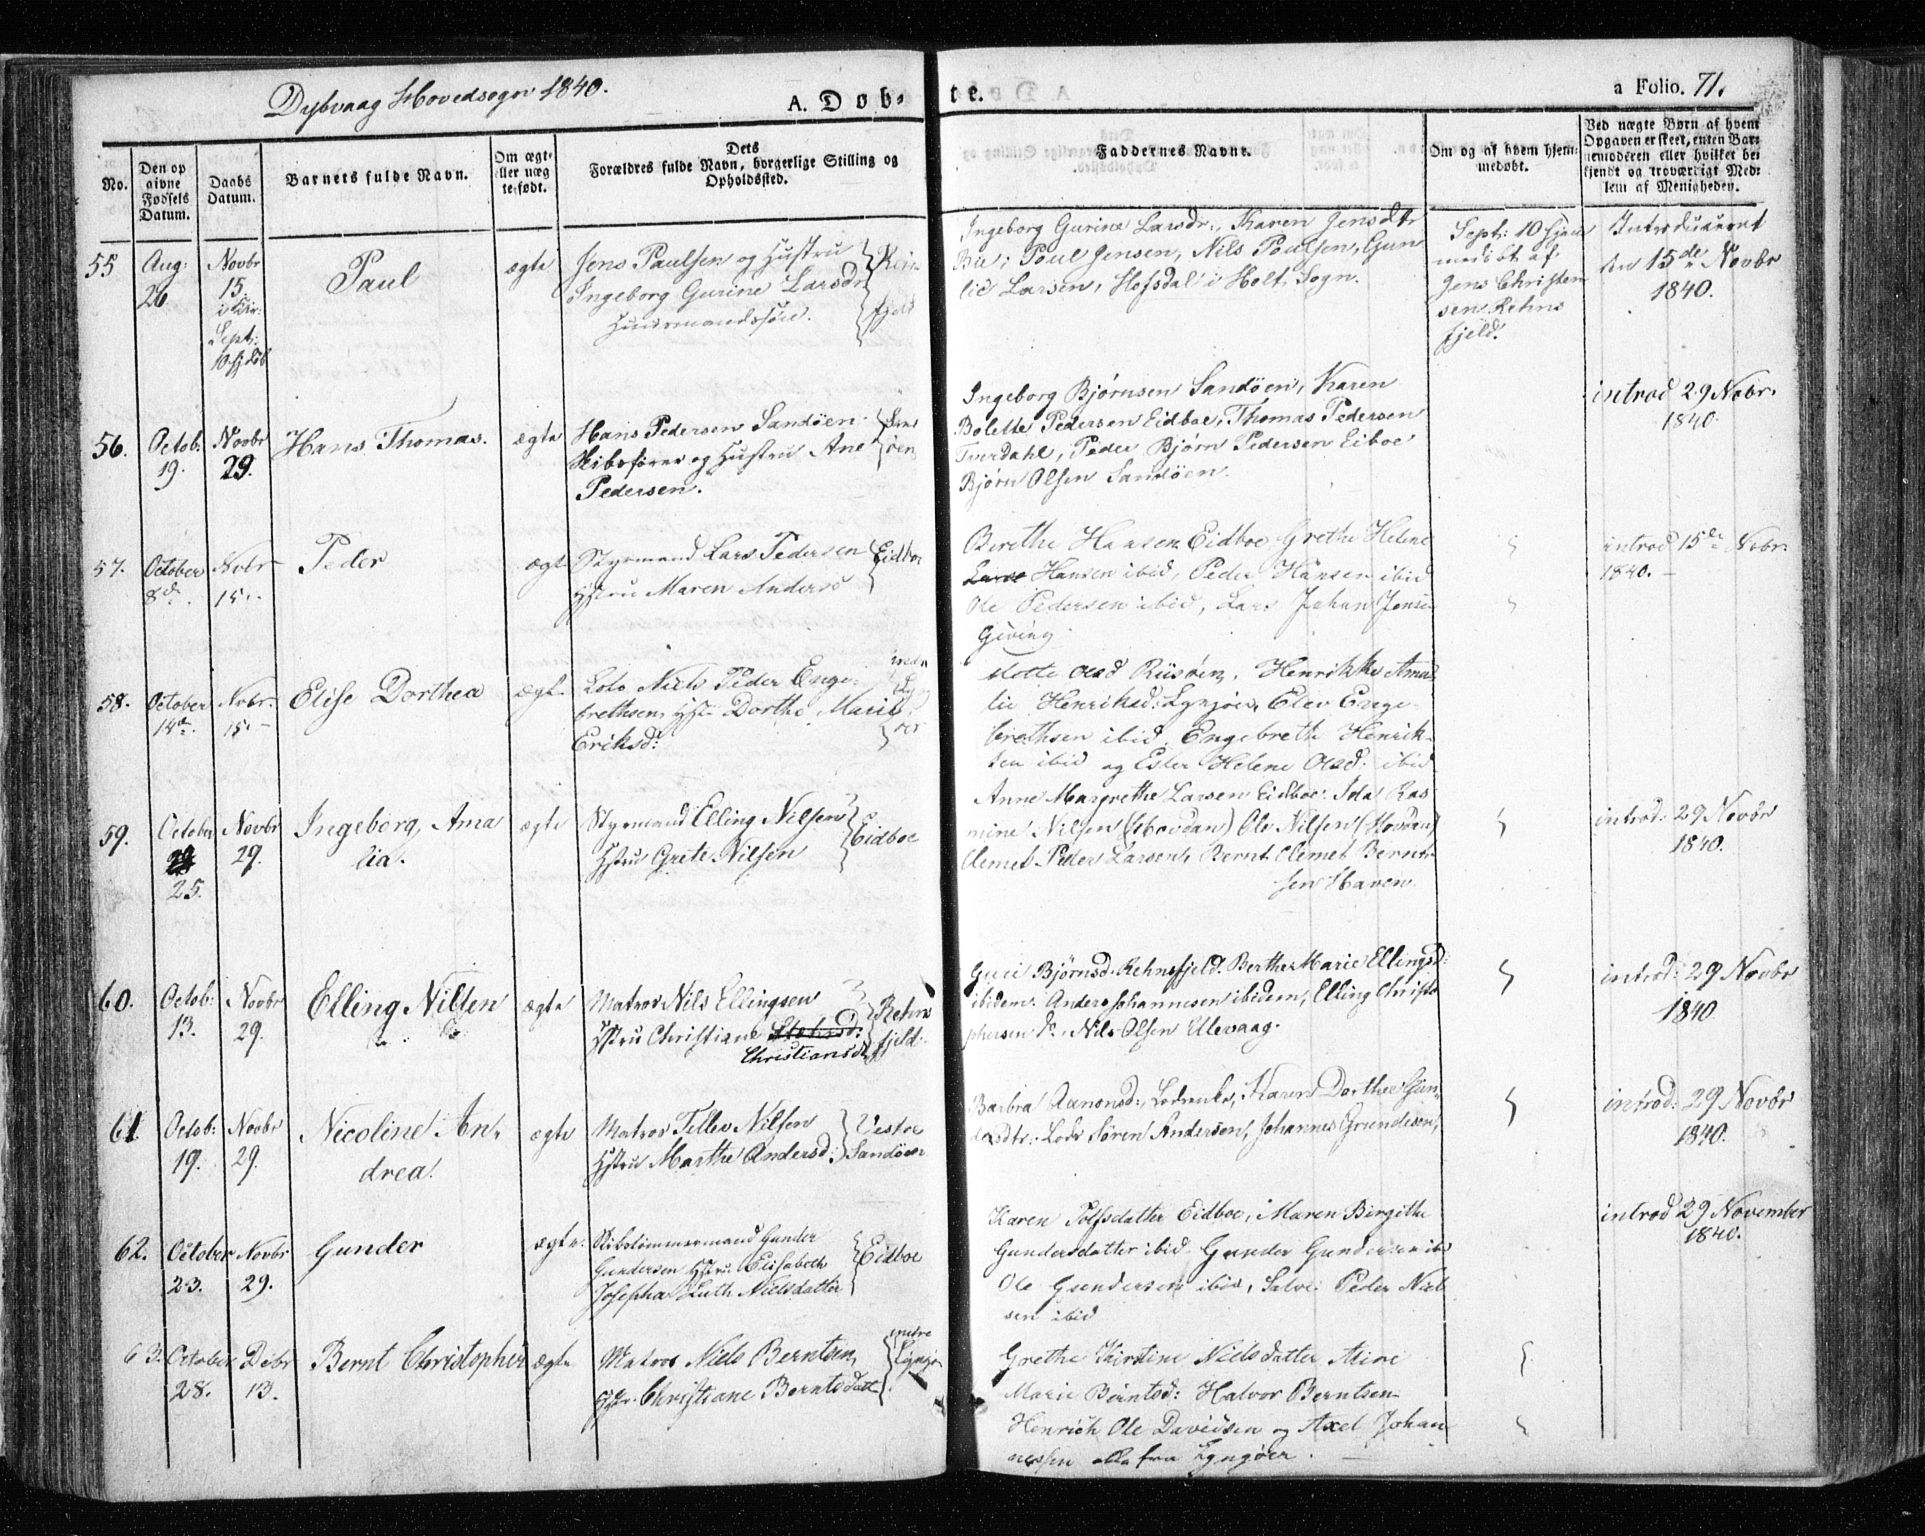 Dybvaag Hovedsogn 1840.
A. Døb-
te.
a Folio. 71.
No.
Den op
givne
Fødsels
Datum.
Daabs
Datum.
Barnets fulde Navn.
Om ægte
eller uæg
te født.
Dets
Forældres fulde Navn, borgerlige Stilling og
Opholdssted.
Faddernes Navne.
Om og af hvem hjem-
medøbt.
Ved uægte Børn af hvem
Opgaven er skeet, enten Bar-
nemoderen eller hvilket be-
kjendt og troværdigt Med-
lem af Menigheden.
55
Aug:
26
Novbr
15
Sept:
Paul
ægte
Jens Paulsen og Hustru
Ingeborg Gurine Larsdr
Huusmandsfolk.
fjeld
Ingeborg Gurine Larsdr., Karen Jensdtr
Bie, Poul Jensen, Nils Poulsen, Gun
Larsen, Hofsdal i Holt Sogn.
Sept: 10 hjem
medøbt af
Jens Christen
sen Rehns
fjeld.
Introduceret
den 15de Novbr
1840.
56.
Octob:
19.
Novbr
29.
Hans Thomas.
ægte
Hans Pedersen Sandöen
Skibsfører og Hustru Ane
Pedersen.
Sand
öen
Ingeborg Bjørnsen Sandöen, Karen
Bolette Pedersen Eidboe, Thomas Pedersen
Tverdahl, Peder Bjørn Pedersen Eiboe
Bjørn Olsen Sandöen.
introd 29 Nobr.
1840.
57.
October
8de
Nvbr
15.
Peder
ægt
Styrmand Lars Pedersen
Hstru Maren Anders
Eidboe
Berethe Hansen Eidboe Grethe Helene
Hansen ibid, Peder Hansen ibid
Ole Pedersen ibid, Lars Johan Jense
Giving
introd 15de Nvbr.
1840.
58.
October
14de
Nvbr.
15.
Elise Dorthea
ægt
Lods Niels Peder Enge-
brethsen, Hst Dorthe Marie
Eriksd:
Mette Olsd Riisøen, Henrikke Ama
lie Henriksd: Lyngöer, Elev Enge-
brethsen ibid, Engebreth Henrik-
sen ibid og Ester Helene Olsd. ibid
59.
October
25.
Novbr
29.
Ingeborg Ama
lia.
ægte
Styrmand Elling Nilsen
Hstru Grete Nilsen
Eidboe
Anne Margrethe Larsen Eidboe. Ida Ras
mine Nilsen (Hovdan) Ole Nilsen (Hovdan)
Clemet Peder Larsen, Bernt Clemet Bernt-
sen Haven.
introd: 29 Novbr
1840.
60.
Octob:
13.
Novbr
29.
Elling Nilsen
ægte
Matros Nils Ellingsen
Hstru Christiane
Christiansd
Rehns
fjeld.
Guri Bjørnsd. Rehnsfjeld. Berthe Marie Ellingsd:
ibidem. Anders Johannesen ibidem, Elling Christo
phersen do. Nils Olsen Ellevaag.
introd: 29 Novbr
1840
61.
Octob:
19.
Novbr
29.
Nicoline An-
drea.
ægte
Matros Tellev Nilsen
Hstru Marthe Andersd:
Vestre
Sandöen
Barbra Aanonsd:, Karen Dorthea Gun-
dersdtr: Lods Sören Andersen, Johannes Grundesen,
introd: 29 Novbr
1840.
62.
October
23.
Novbr
29.
Gunder
ægte.
Skibstömmermand Gunder
Gundersen Hstru. Elisabeth
Josepha Nielsdatter
Eidboe
Karen Rolfsdatter Eidboe, Maren Birgithe
Gundersdatter ibid. Gunder Gundersen ib
Ole Gundersen ibid, Salve Peder Niel
sen ibid
introd 29 November
1840.
63.
October
28.
Debr
13.
Bernt Christopher
ægte
Matros Niels Berntsen,
Hstr. Christiane Berntsdatt
indre
Lyngör
Grethe Kirstine Nielsdatter
Marie Berntsd: Halvor Berntsen
Henrich Ole Davidsen og Axel Johan
nessen alle fra Lyngöer.